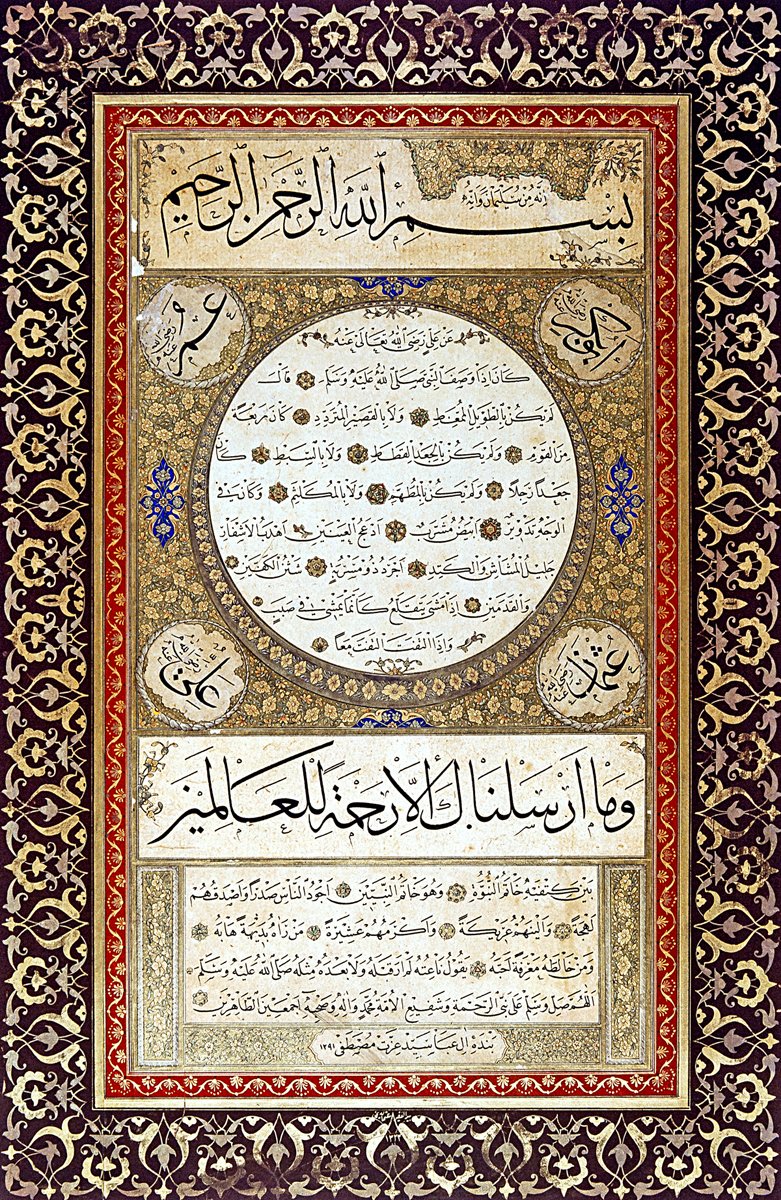 انه من سليمان وانه
بسم الله الرحمن الرحيم
ابو بكر رضى الله عنه
عمر رضى الله عنه
عن علي رضى الله تعالى عنه
كان اذا وصف النبى صلى الله عليه وسلم قال
لم يكن بالطويل الممغط ولا بالقصير المتردد كان ربعة
من القوم ولم يكن بالجعد القطط ولا بالسبط كان
جعدا رجلا ولم يكن بالمطهم ولا بالمكلثم وكان فى
الوجه تدوير ابيض مشرب ادعج العينين اهدب الاشفار
جليل المشاش والكتد اجرد ذو مسربة شثن الكفين
والقدمين اذا مشى يتقلع كانما يمشى فى صبب
واذا التفت التفت معا
عثمان رضى الله عنه
على رضى الله عنه
وما ارسلناك الا رحمة للعالمين
بين كتفيه خاتم النبوة وهو خاتم النبيين اجود الناس صدرا واصدقهم
لهجة والينهم عريكة واكرمهم عشيرة من راه بديهة هابه
ومن خالطه معرفة احبه يقول ناعته لم ار قبله ولا بعده مثله صلى الله عليه وسلم
اللهم صل وسلم على نبى الرحمة وشفيع الامة محمد واله وصحبه اجمعين الطاهرين
بنده ال عبا سيد عزت مصطفى ١٢٩١
١٣٢٢